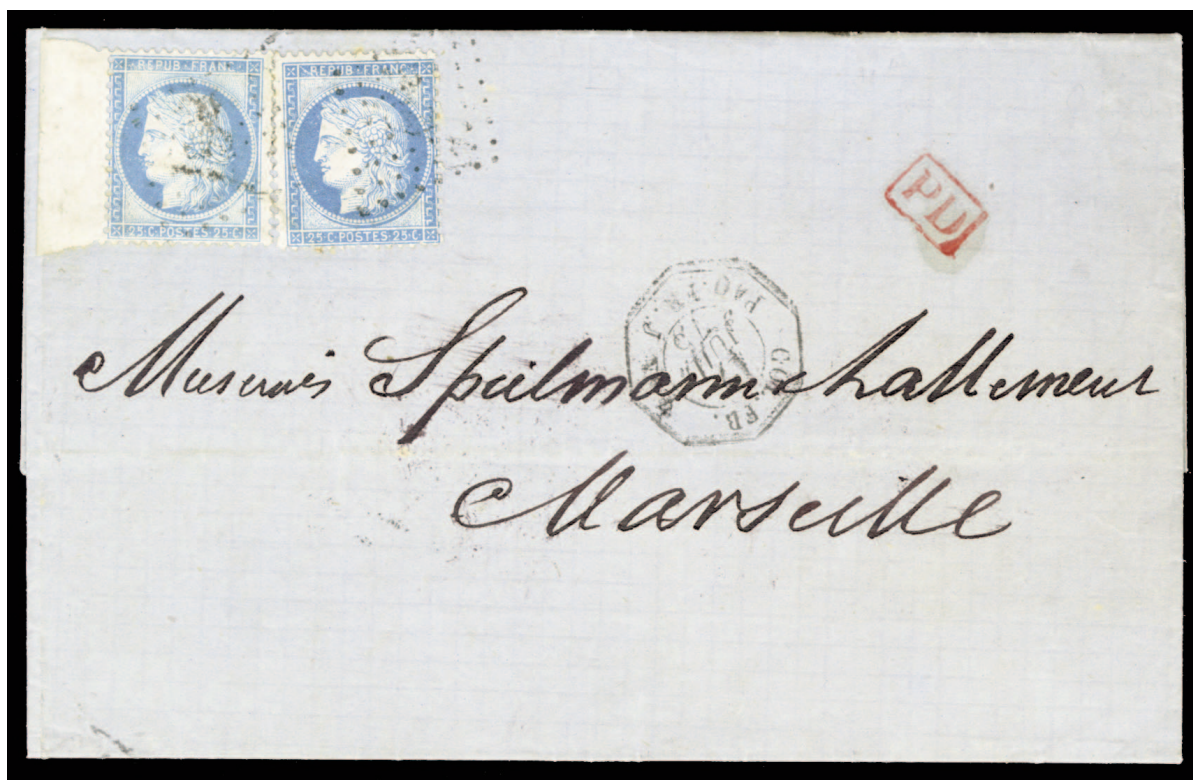 REPUB·FRANC·
25·C·POSTES·25·C·
REPUB·FRANC·
25·C·POSTES·25·C·
PD
PAQ·FR· J
COR
Messieurs Spielmann & Lallemeur
Marseille